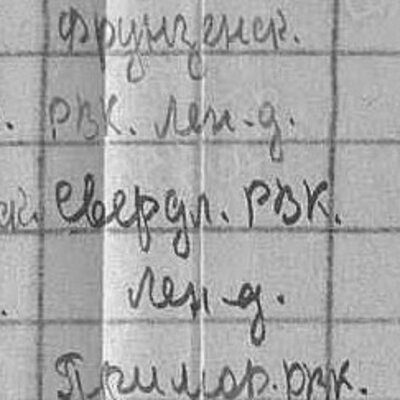 Фрунзенск.
РВК. Лен-д.
Свердл. РВК.
Лен-д.
Примор. РВК.